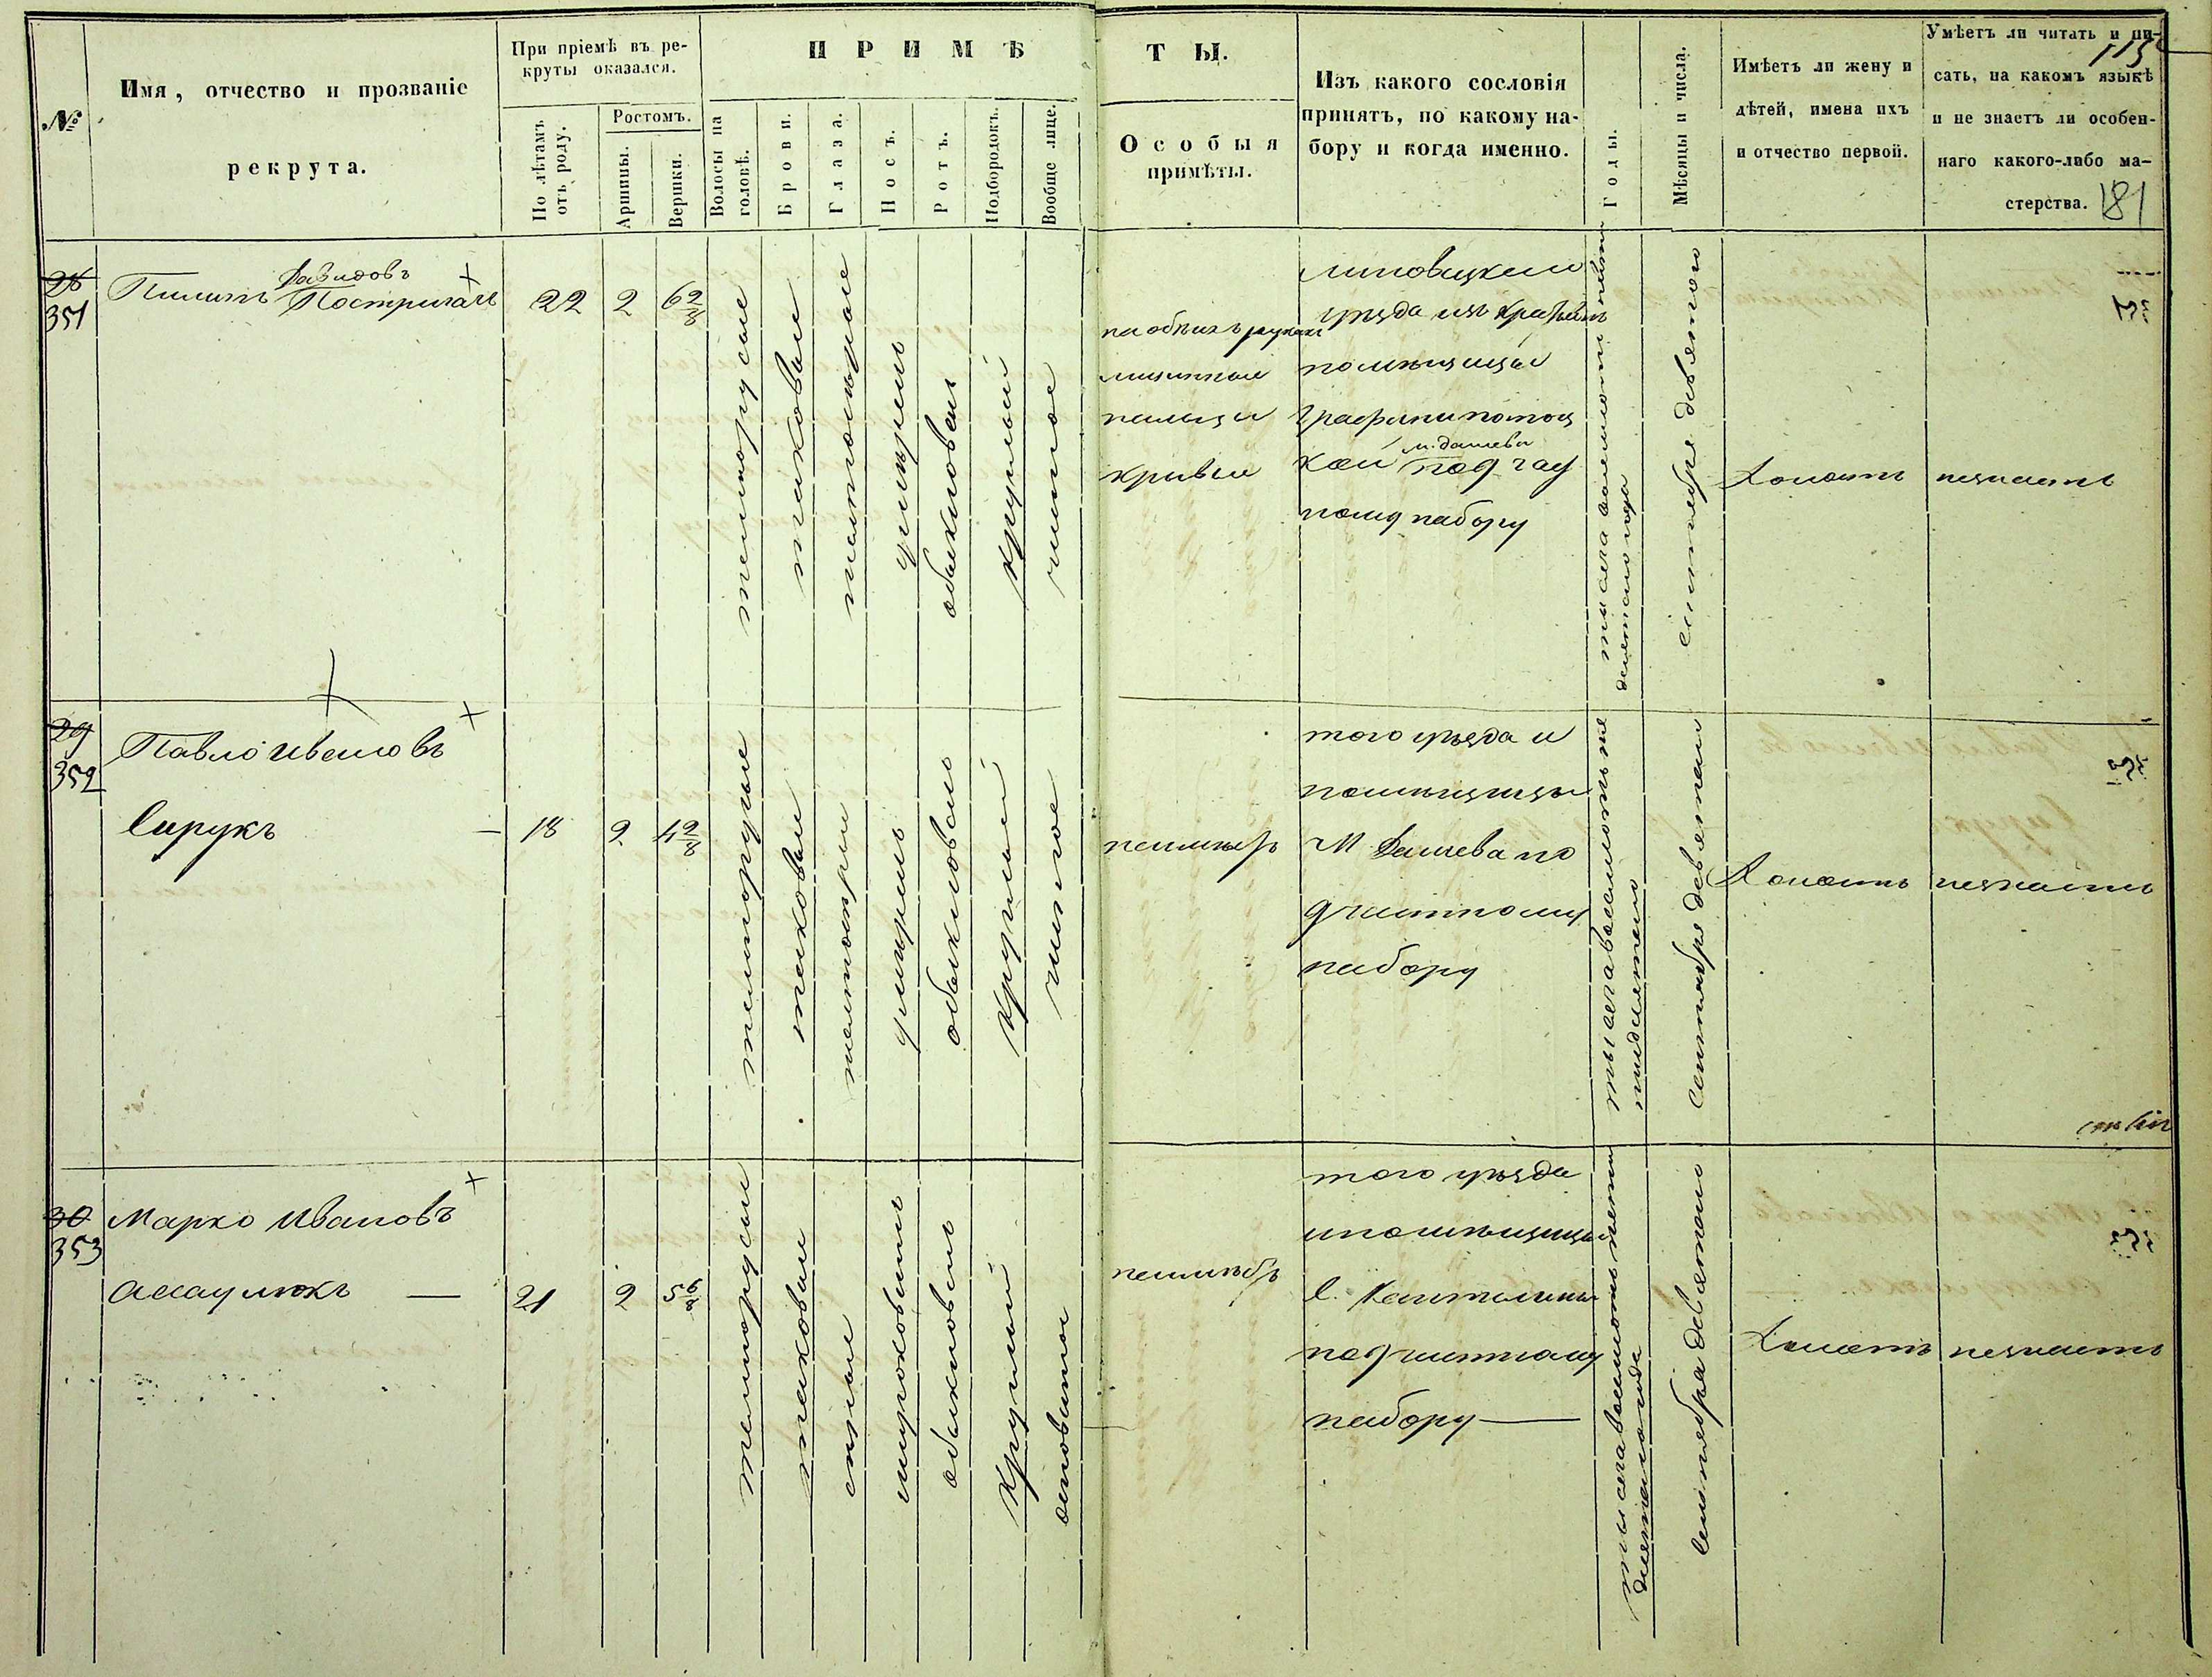 №
Имя, отчество и прозваніе
рекрута.
При пріемѣ въ ре-
круты оказался.
По лѣтамъ
отъ роду.
Ростомъ.
Аршины.
Вершки.
ПРИМѢ
Волосы на
головѣ.
Брови.
Глаза.
Носъ.
Ротъ.
Подбородокъ.
Вообще лице.
ТЫ.
Особыя
примѣты.
Изъ какого сословія
принятъ, по какому на-
бору и когда именно.
Годы.
Мѣсяцы и числа.
Имѣетъ ли жену и
дѣтей, имена ихъ
и отчество первой.
Умѣетъ ли читать и пи-
сать, на какомъ языкѣ
и не знаетъ ли особен-
наго какого-либо ма-
стерства.
115
181
28
351
Давидовъ
Пилипъ Постригачъ
22
2
6 2/8
темнорусые
таковые
умѣренъ
обыкновенъ
круглый
чистое
на обѣихъ рукахъ
мизинные
пальцы
кривые
Липовецкаго
уѣзда изъ крестьянъ
помѣщицы
графини Потоц
кой м. Дашева
под час
ному набору
сентября девятого
Холостъ
незнаетъ
29
352
Павло Ивановъ
Сирукъ
18
2
4 2/8
темнорусые
таковые
умѣренъ
обыкновенъ
круглый
чистое
неимѣетъ
того уѣзда и
помѣщицы
М Дашева по
д частному
набору
сентября девятого
Холостъ
незнаетъ
30
353
Марко Ивановъ
Асаулюкъ
21
2
5 6/8
темнорусые
таковые
сѣрые
широковатъ
обыкновенъ
круглый
неимѣетъ
того уѣзда
и помѣщицы
с.
под частному
набору
сентября девятого
Холостъ
незнаетъ